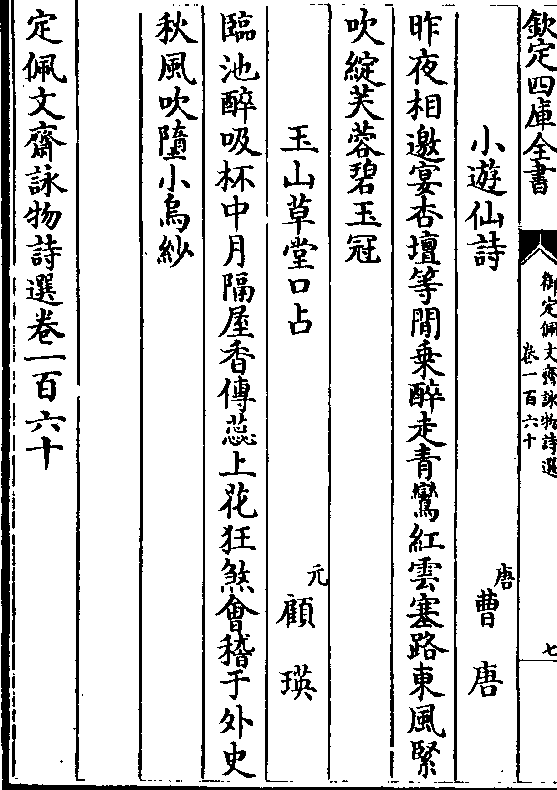 欽定四庫全書
御定佩文齋詠物詩選
卷一百六十
七
小遊仙詩
唐
曹唐
昨夜相邀宴杏壇等閒乗醉走青鸞紅雲塞路東風緊
吹綻芙蓉碧玉冠
玉山草堂口占
元
顧瑛
臨池醉吸杯中月隔屋香傳蕊上花狂煞會稽于外史
秋風吹墮小烏紗
定佩文齋詠物詩選卷一百六十